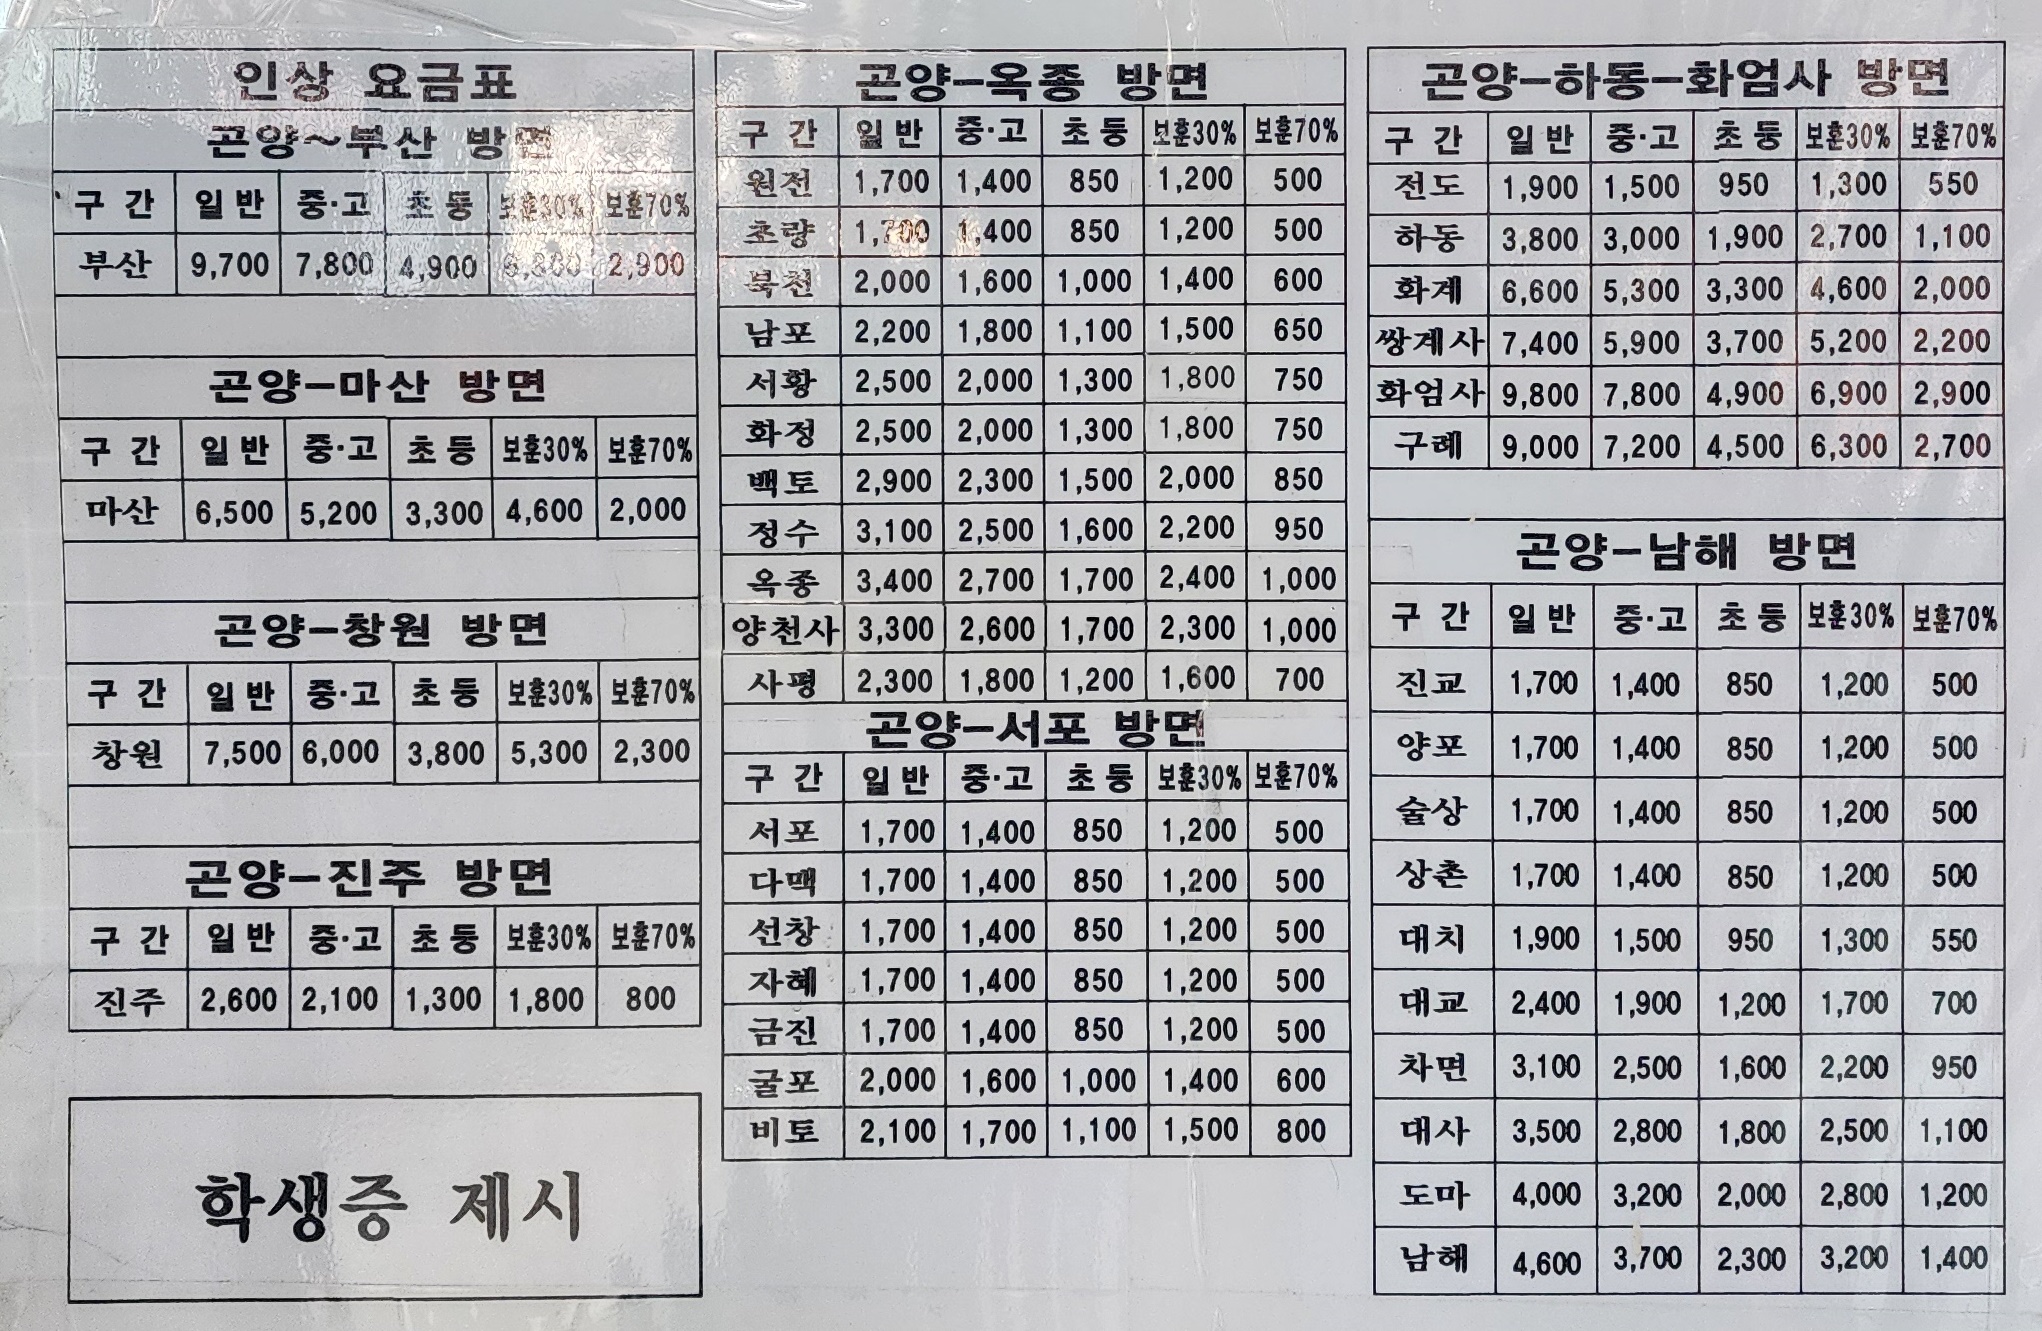 인상 요금표
곤양~부산 방면
구 간 일 반 중·고 초 등 보훈30% 보훈70%
부산 9,700 7,800 4,900 6,800 2,900
곤양-마산 방면
구 간 일 반 중·고 초 등 보훈30% 보훈70%
마산 6,500 5,200 3,300 4,600 2,000
곤양-창원 방면
구 간 일 반 중·고 초 등 보훈30% 보훈70%
창원 7,500 6,000 3,800 5,300 2,300
곤양-진주 방면
구 간 일 반 중·고 초 등 보훈30% 보훈70%
진주 2,600 2,100 1,300 1,800 800
학생증 제시
곤양-옥종 방면
구 간 일 반 중·고 초 등 보훈30% 보훈70%
원전 1,700 1,400 850 1,200 500
초량 1,700 1,400 850 1,200 500
북천 2,000 1,600 1,000 1,400 600
남포 2,200 1,800 1,100 1,500 650
서황 2,500 2,000 1,300 1,800 750
화정 2,500 2,000 1,300 1,800 750
백토 2,900 2,300 1,500 2,000 850
정수 3,100 2,500 1,600 2,200 950
옥종 3,400 2,700 1,700 2,400 1,000
양천사 3,300 2,600 1,700 2,300 1,000
사평 2,300 1,800 1,200 1,600 700
곤양-서포 방면
구 간 일 반 중·고 초 등 보훈30% 보훈70%
서포 1,700 1,400 850 1,200 500
다맥 1,700 1,400 850 1,200 500
선창 1,700 1,400 850 1,200 500
자혜 1,700 1,400 850 1,200 500
금진 1,700 1,400 850 1,200 500
굴포 2,000 1,600 1,000 1,400 600
비토 2,100 1,700 1,100 1,500 800
곤양-하동-화엄사 방면
구 간 일 반 중·고 초 등 보훈30% 보훈70%
전도 1,900 1,500 950 1,300 550
하동 3,800 3,000 1,900 2,700 1,100
화계 6,600 5,300 3,300 4,600 2,000
쌍계사 7,400 5,900 3,700 5,200 2,200
화엄사 9,800 7,800 4,900 6,900 2,900
구례 9,000 7,200 4,500 6,300 2,700
곤양-남해 방면
구 간 일 반 중·고 초 등 보훈30% 보훈70%
진교 1,700 1,400 850 1,200 500
양포 1,700 1,400 850 1,200 500
술상 1,700 1,400 850 1,200 500
상촌 1,700 1,400 850 1,200 500
대치 1,900 1,500 950 1,300 550
대교 2,400 1,900 1,200 1,700 700
차면 3,100 2,500 1,600 2,200 950
대사 3,500 2,800 1,800 2,500 1,100
도마 4,000 3,200 2,000 2,800 1,200
남해 4,600 3,700 2,300 3,200 1,400